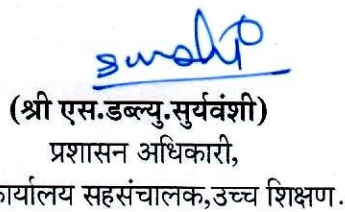 (श्री एस.डब्ल्यु.सुर्यवंशी)
प्रशासन अधिकारी,
सहसंचालक,उच्च शिक्षण.